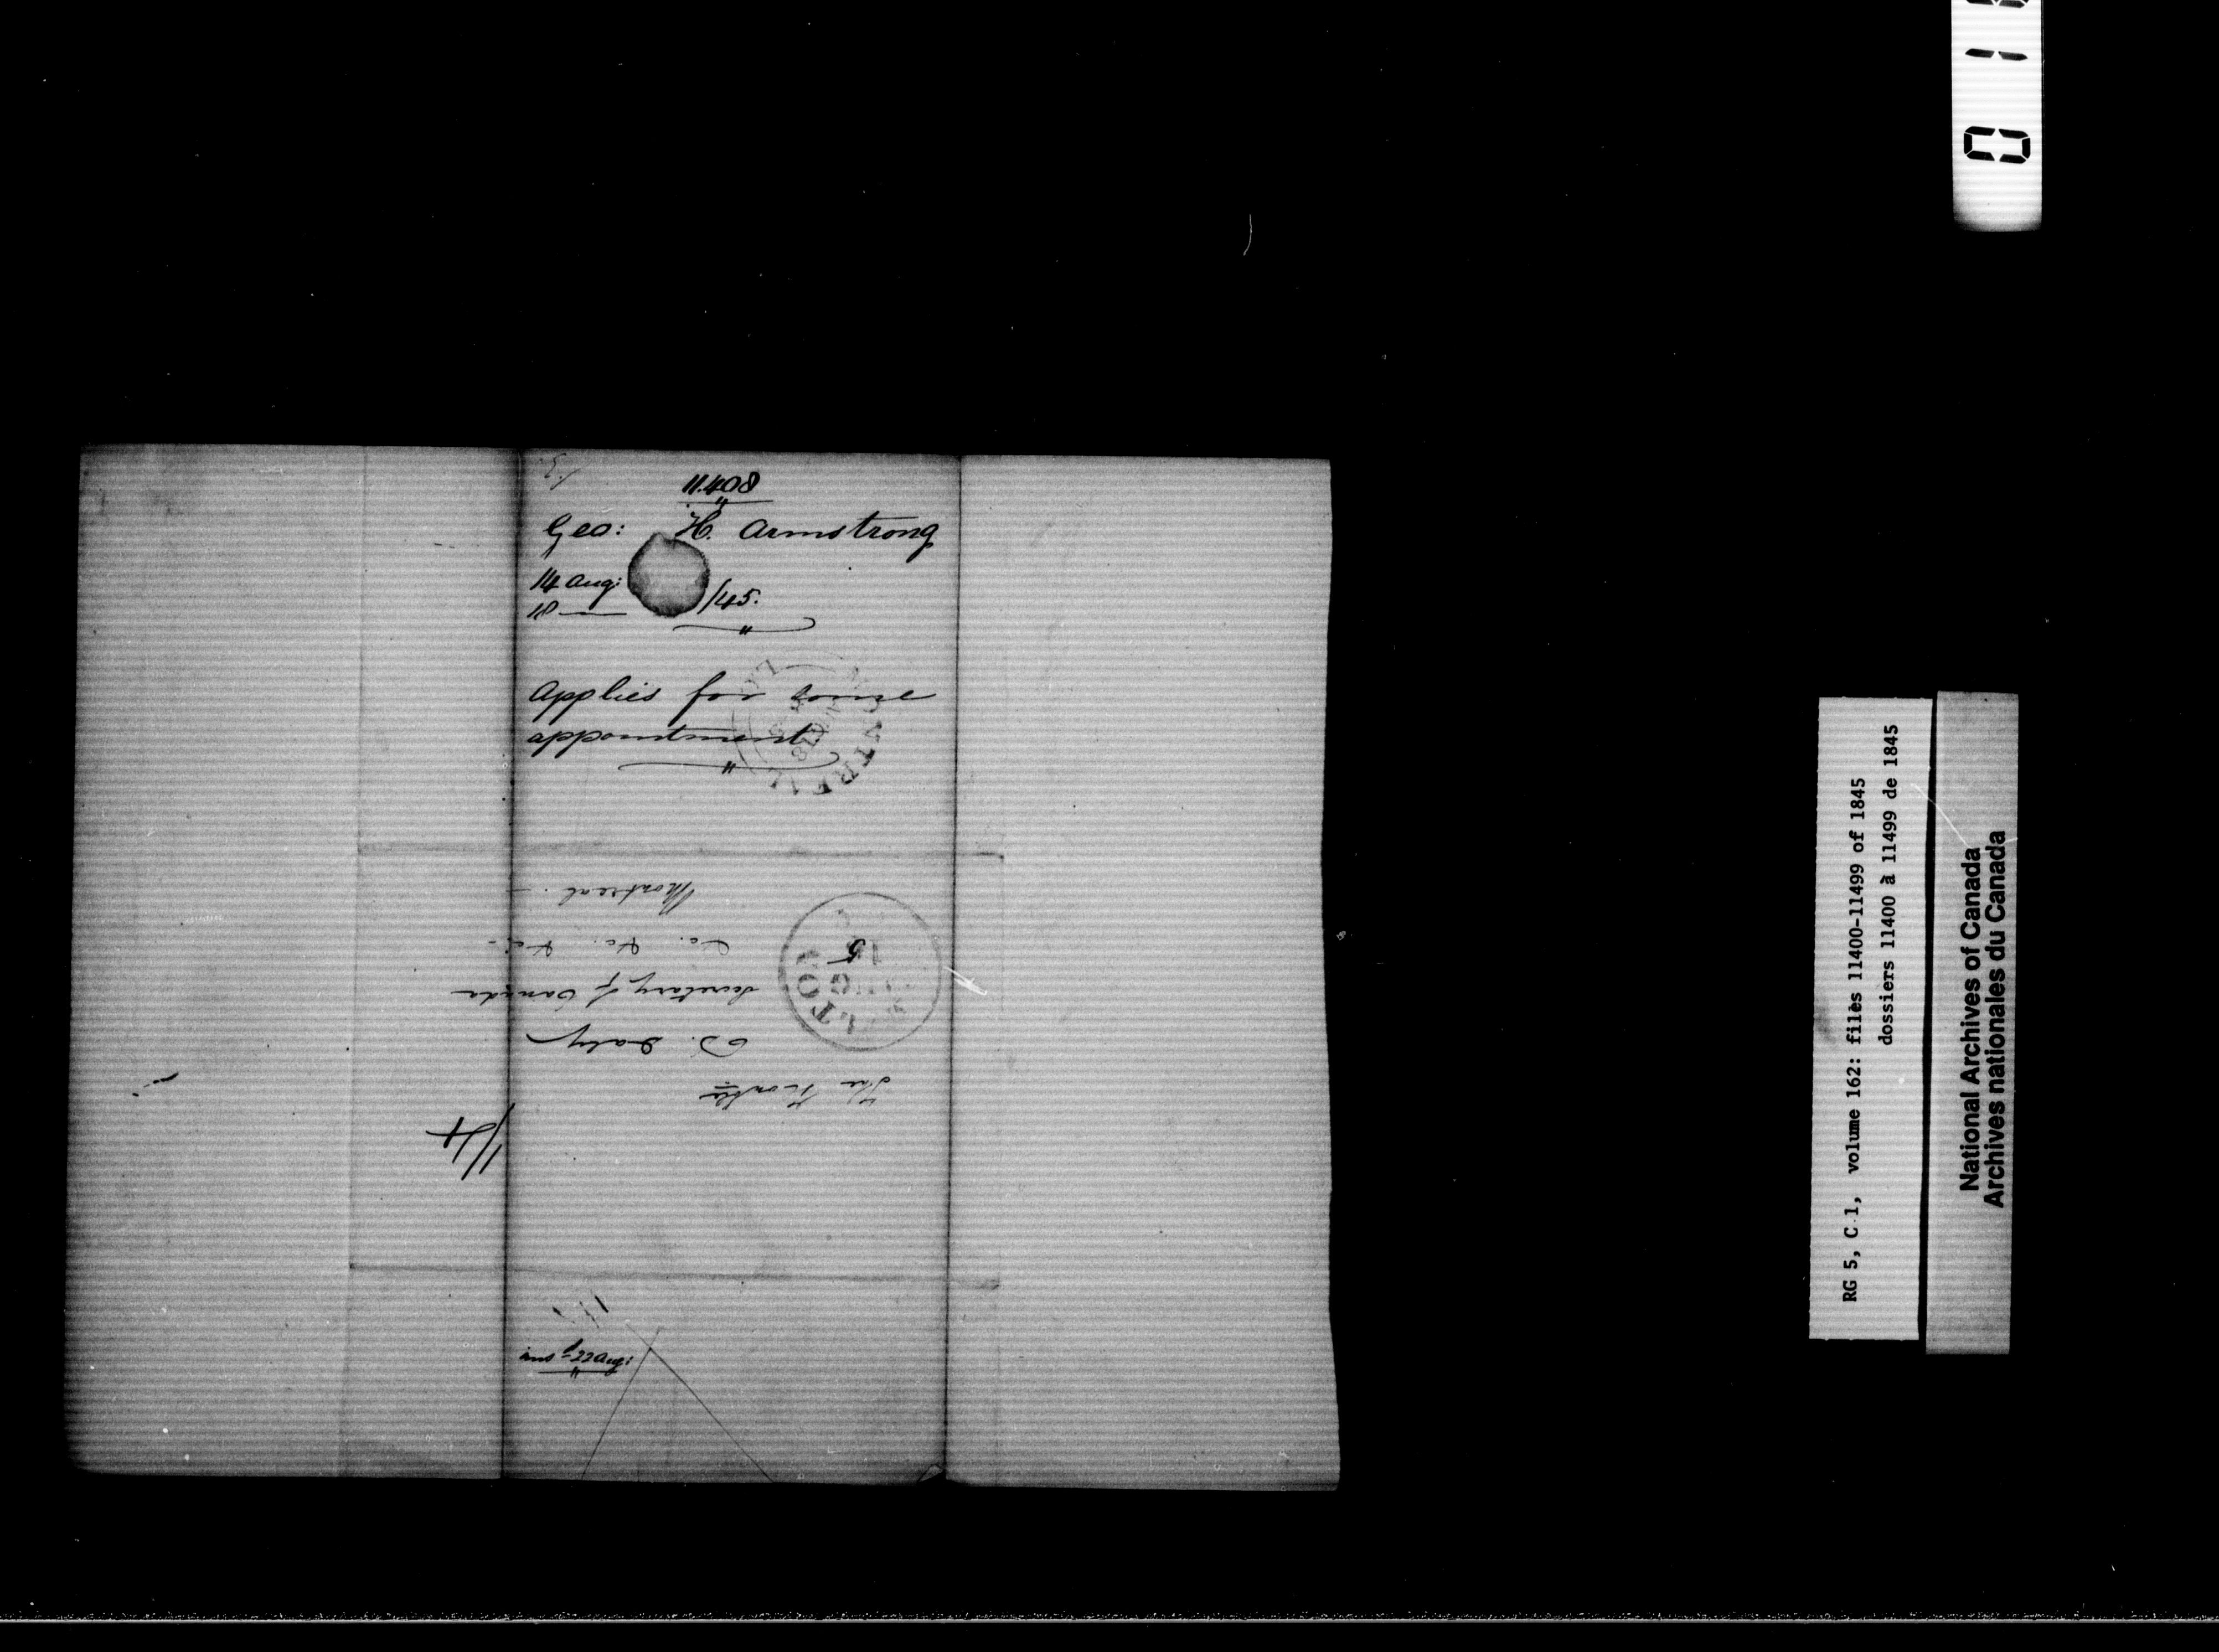 11.408
Geo: H. Armstrong
14 Aug:
18 — /45.
Applies for some
appointment
MONTREAL
AU 18
The Honble
D. Daly
Secretary of Canada
&c. &c. &c.
Montreal.
HAMILTON
AUG
15
1/4
ans 22 Aug:
RG 5, C 1, volume 162: files 11400-11499 of 1845
dossiers 11400 à 11499 de 1845
National Archives of Canada
Archives nationales du Canada